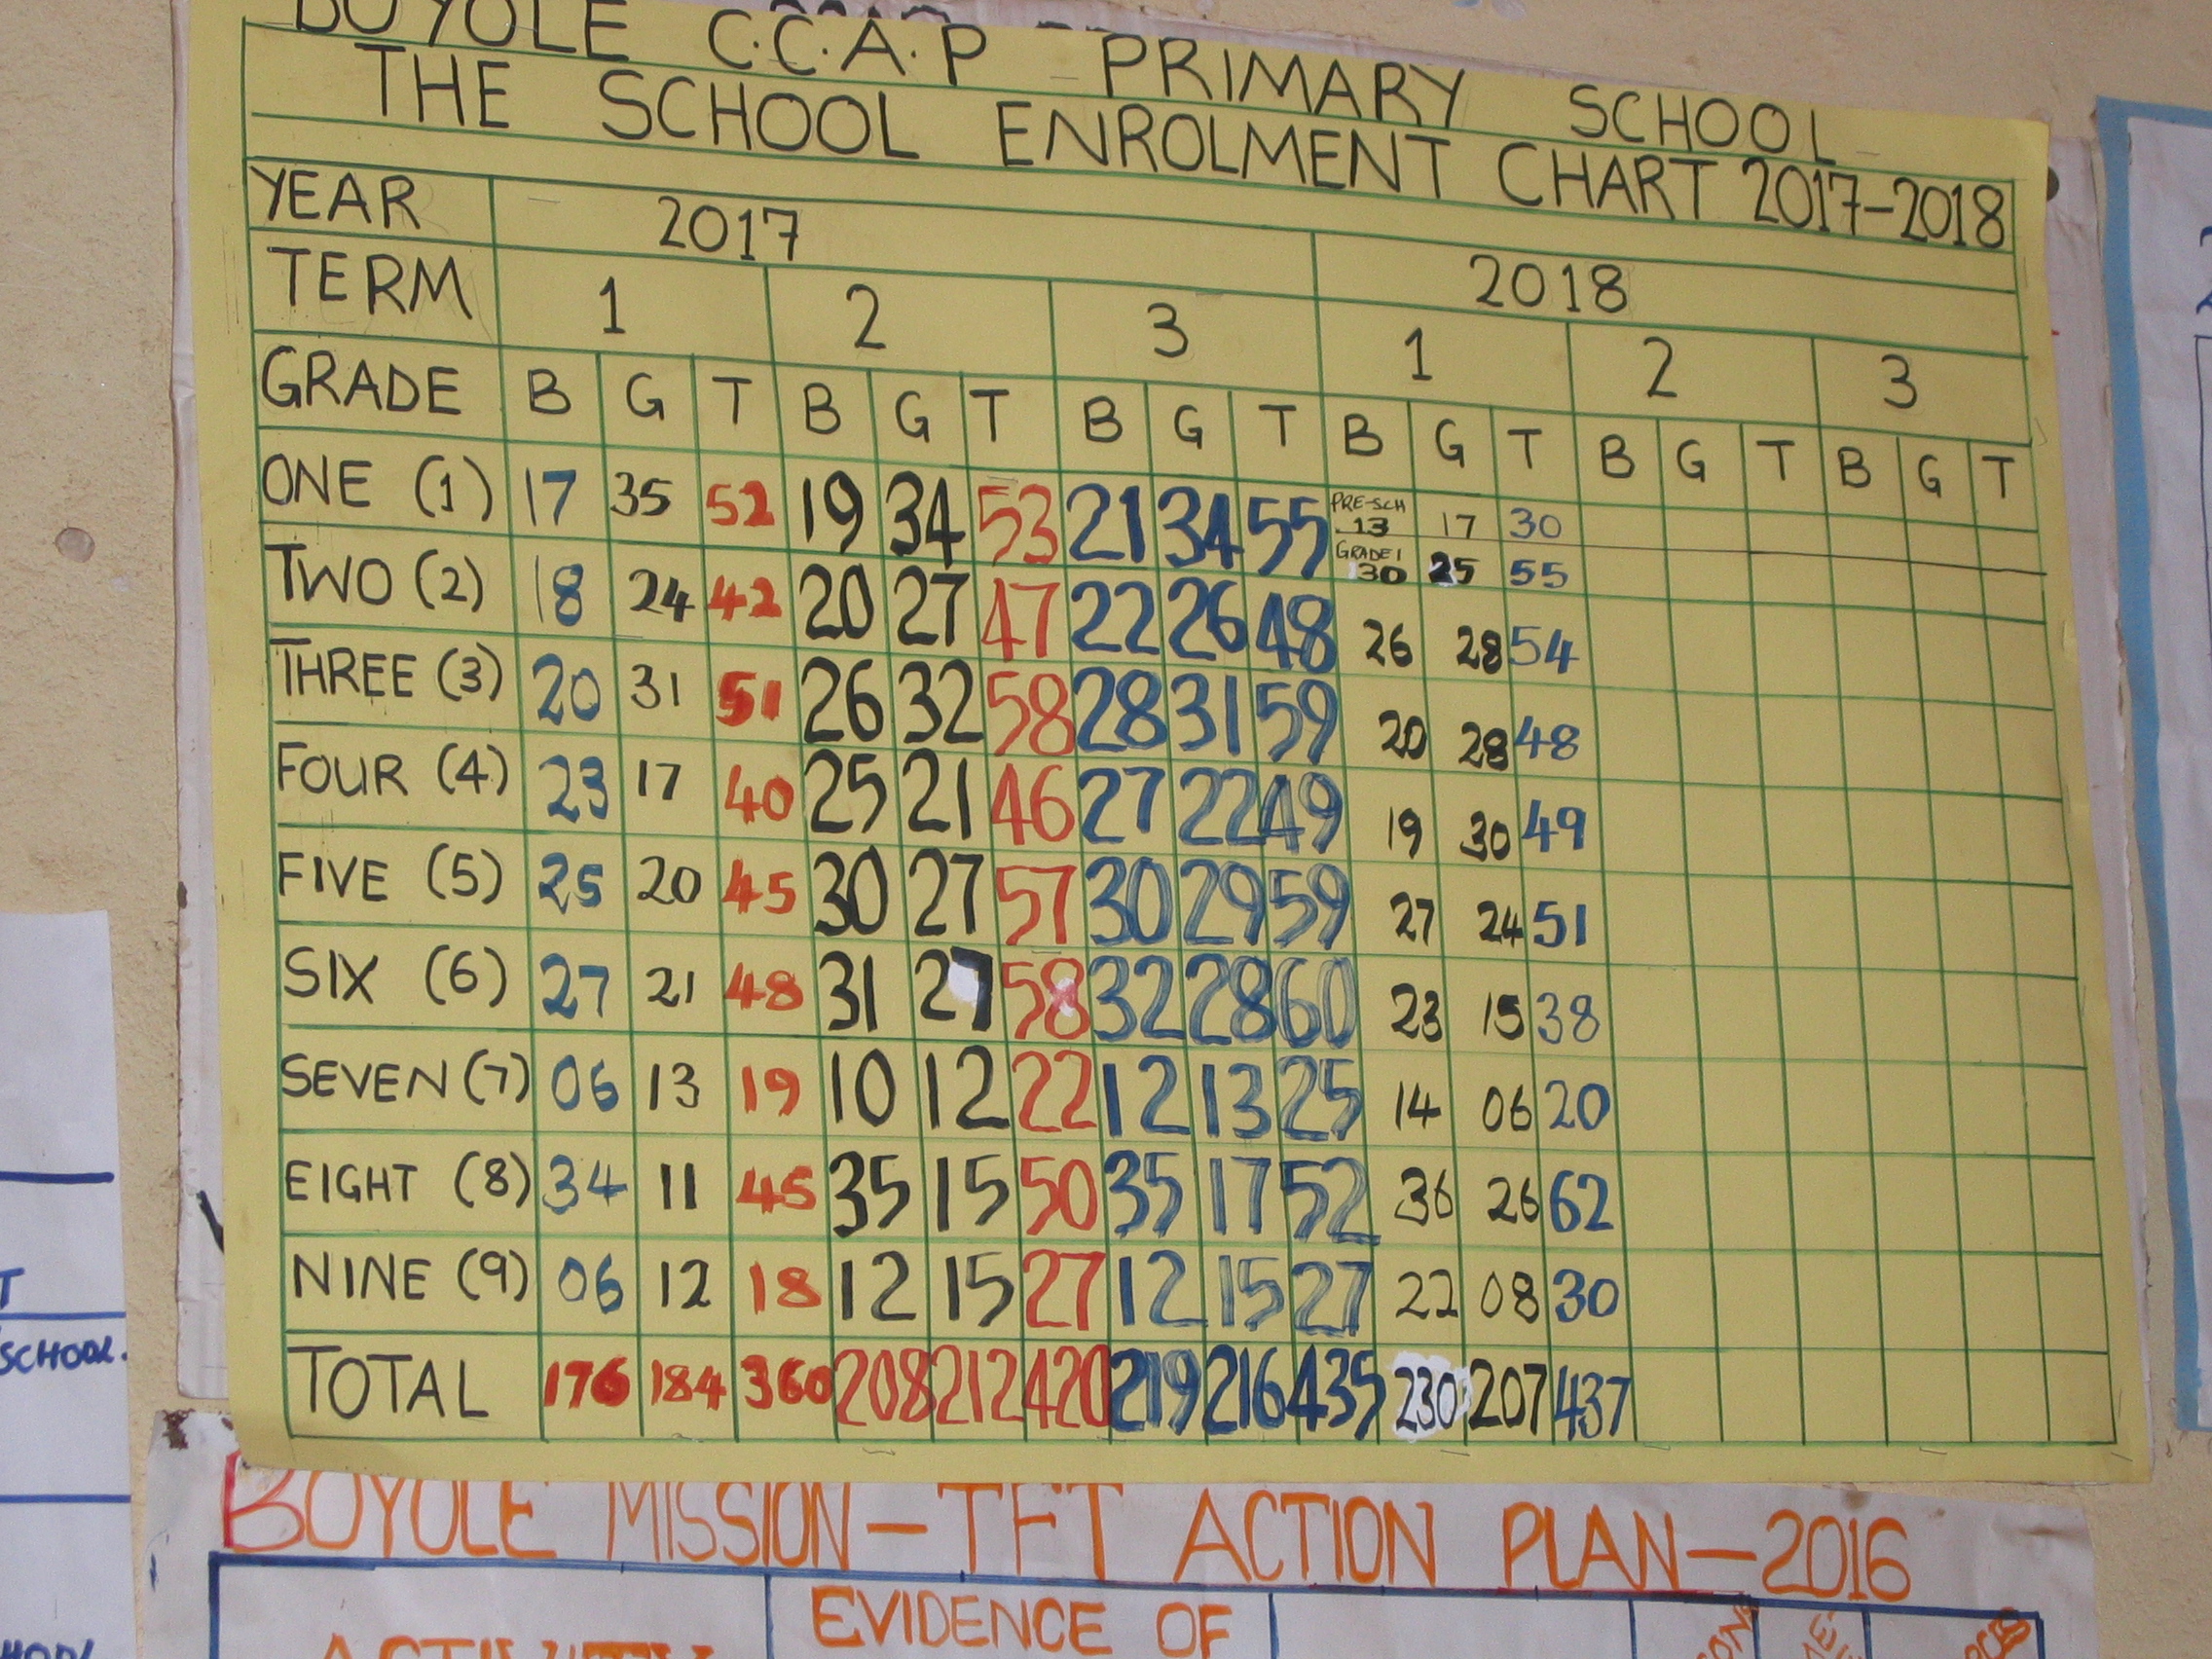 BOYOLE C.C.A.P PRIMARY SCHOOL
THE SCHOOL ENROLMENT CHART 2017-2018
YEAR 2017 2018
TERM 1 2 3 1 2 3
GRADE B G T B G T B G T B G T B G T B G T
ONE (1) 17 35 52 19 34 53 21 34 55 PRE-SCH 13 17 30
GRADE 1 30 25 55
TWO (2) 18 24 42 20 27 47 22 26 48 26 28 54
THREE (3) 20 31 51 26 32 58 28 31 59 20 28 48
FOUR (4) 23 17 40 25 21 46 27 22 49 19 30 49
FIVE (5) 25 20 45 30 27 57 30 29 59 27 24 51
SIX (6) 27 21 48 31 27 58 32 28 60 23 15 38
SEVEN (7) 06 13 19 10 12 22 12 13 25 14 06 20
EIGHT (8) 34 11 45 35 15 50 35 17 52 36 26 62
NINE (9) 06 12 18 12 15 27 12 15 27 22 08 30
TOTAL 176 184 360 208 212 420 219 216 435 230 207 437
BOYOLE MISSION - TFT ACTION PLAN - 2016
EVIDENCE OF
ACTIVITY
SCHOOL.